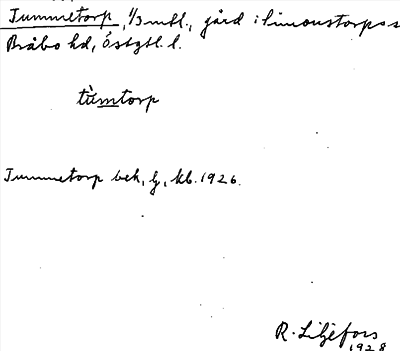 Tummetorp, 1/3 mtl., gård i Simonstorp s
Bråbo hd, Östgtl. l.
tùmtorp
Tummetorp bek, lj, kb. 1926.
R. Liljefors
1928